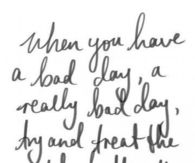 When you have
a bad day, a
really bad day,
try and treat the